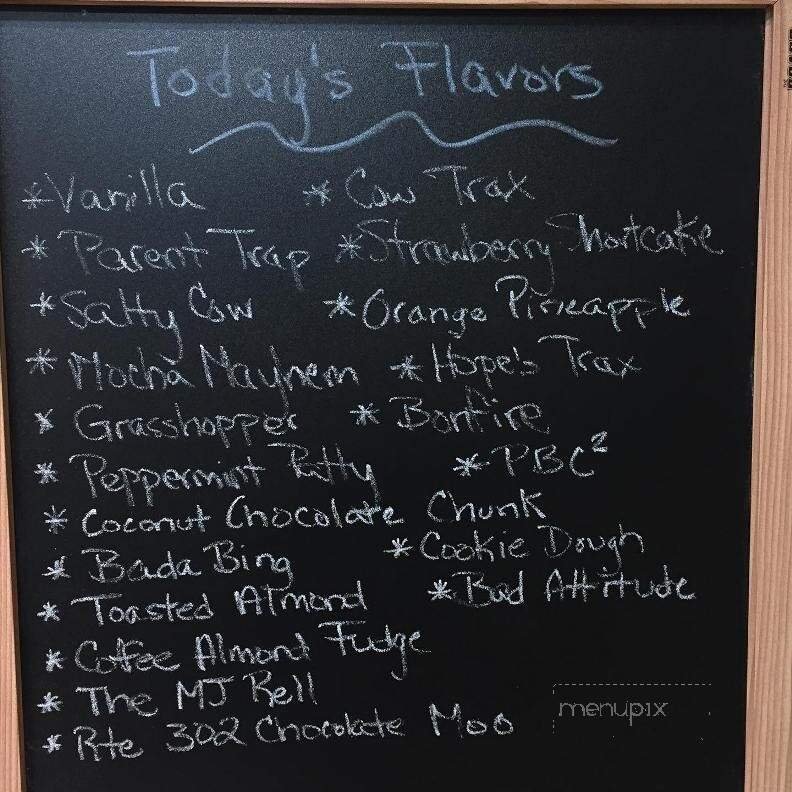 Today's Flavors
*Vanilla * Cow Trax
* Parent Trap *Strawberry Shortcake
* Salty Cow * Orange Pineapple
* Mocha Mayhem * Hope's Trax
* Grasshopper * Bonfire
* Peppermint Patty * PBC²
* Coconut Chocolate Chunk
* Bada Bing * Cookie Dough
* Toasted Almond * Bad Attitude
* Coffee Almond Fudge
* The MJ Bell
* Rte 302 Chocolate Moo
menupix